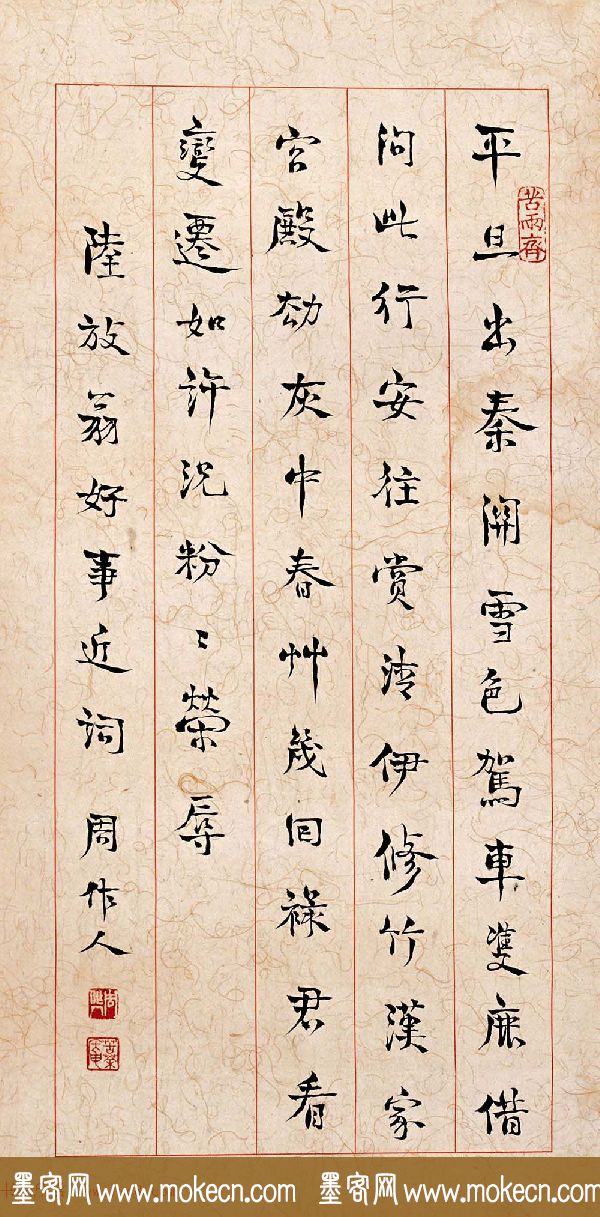 苦雨齋
平旦出秦關雪色駕車雙鹿借
問此行安往賞清伊修竹漢家
宮殿劫灰中春艸幾回綠君看
變遷如許況紛〻榮辱
陸放翁好事近詞 周作人
墨客网 www.mokecn.com 墨客网 www.mokecn.com